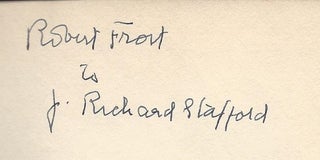 Robert Frost
to
J. Richard Stafford